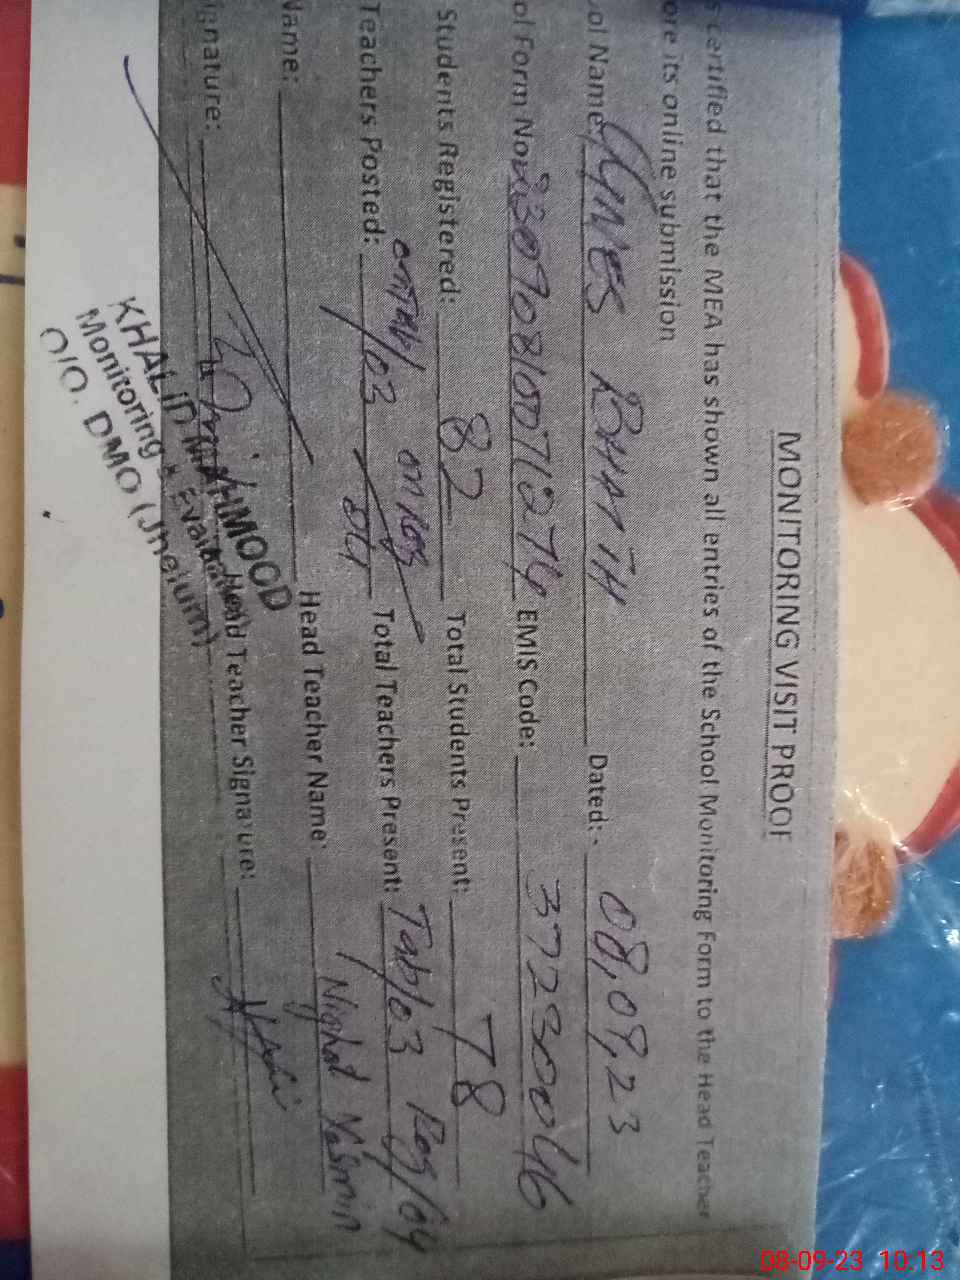 MONITORING VISIT PROOF
s certified that the MEA has shown all entries of the School Monitoring Form to the Head Teacher
ore its online submission
ol Name: Dated:- 08,09,23
ol Form No EMIS Code: 37230046
Students Registered: 82 Total Students Present: 78
Teachers Posted: /03 Total Teachers Present: Tab/03 Reg/04
Name: Head Teacher Name: Nighat Yasmin
ignature: Head Teacher Signature:
KHALID MAHMOOD
Monitoring & Evaluation
O/O. DMO (Jhelum)
08-09-23 10:13